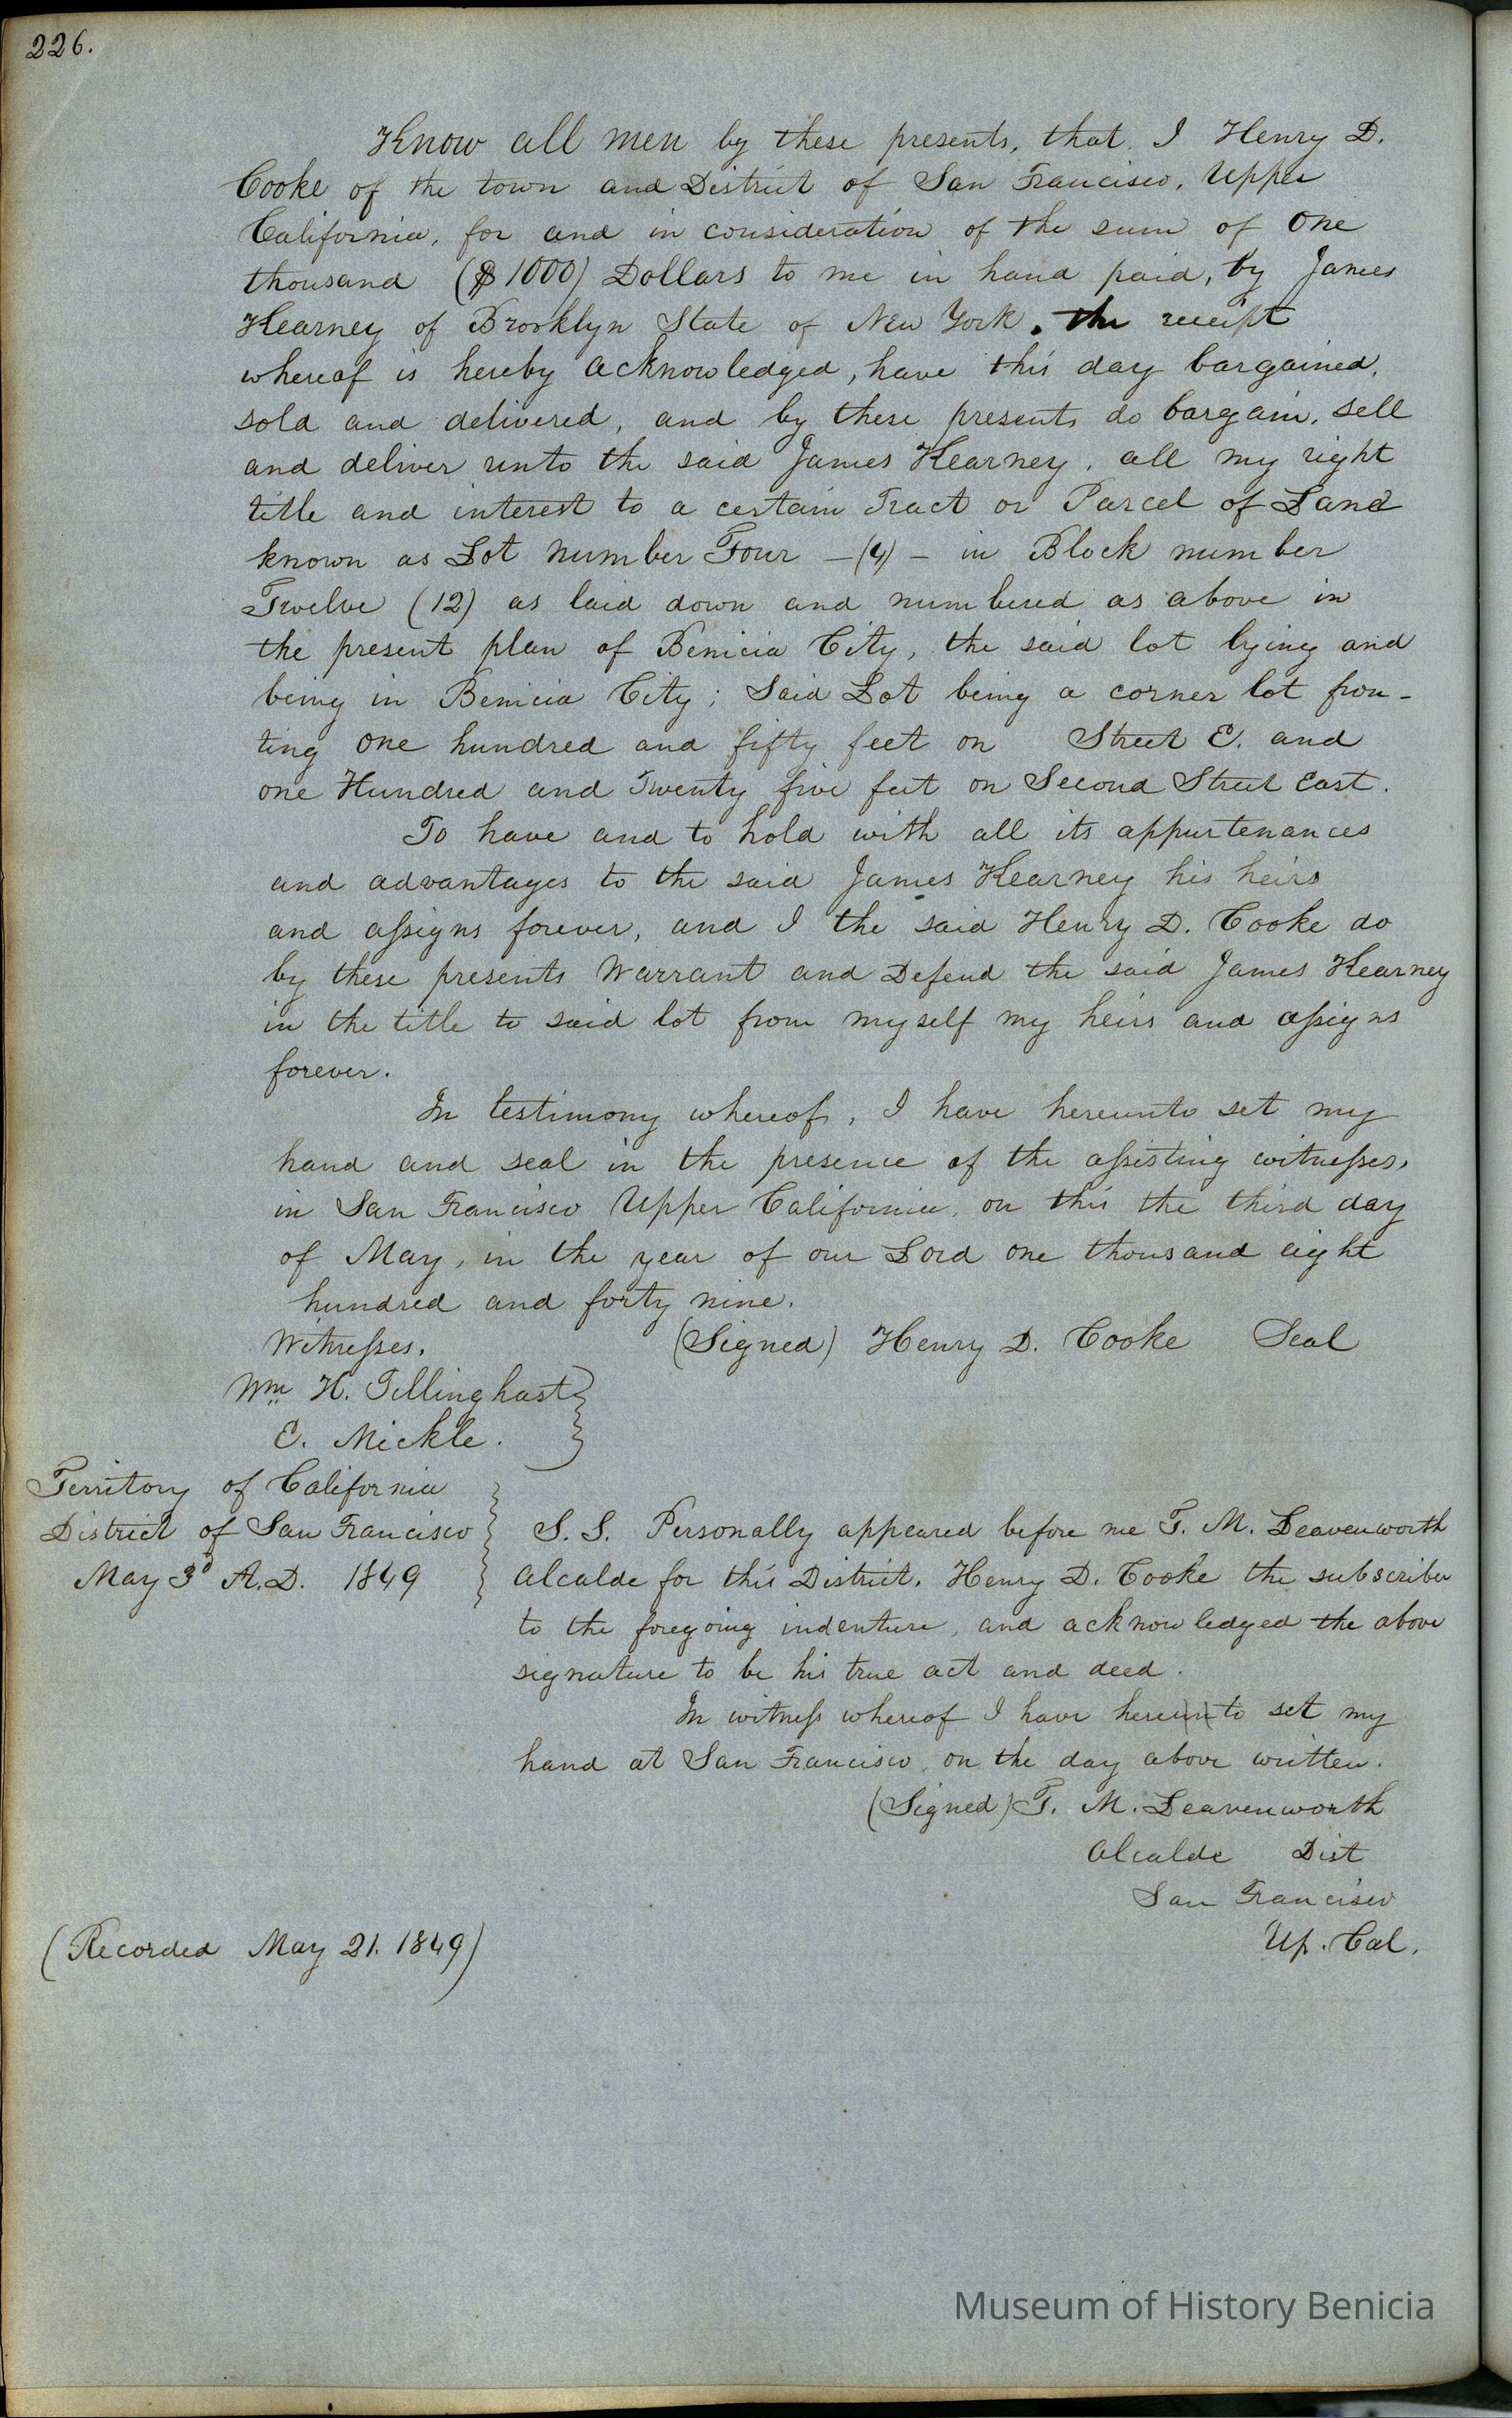 226.
Know all men by these presents, that I Henry D.
Cooke of the town and District of San Francisco, Upper
California, for and in consideration of the sum of One
thousand ($1000) Dollars to me in hand paid, by James
Kearney of Brooklyn State of New York. the receipt
whereof is hereby acknowledged, have this day bargained,
sold and delivered, and by these presents do bargain, sell
and deliver unto the said James Kearney, all my right
title and interest to a certain Tract or Parcel of Land
known as Lot number Four —(4)— in Block number
Twelve (12) as laid down and numbered as above in
the present plan of Benicia City, the said lot lying and
being in Benicia City; Said Lot being a corner lot fron-
ting one hundred and fifty feet on Street E. and
one Hundred and Twenty five feet on Second Street East.
To have and to hold with all its appurtenances
and advantages to the said James Kearney his heirs
and assigns forever, and I the said Henry D. Cooke do
by these presents Warrant and Defend the said James Kearney
in the title to said lot from myself my heirs and assigns
forever.
In testimony whereof, I have hereunto set my
hand and seal in the presence of the assisting witnesses,
in San Francisco Upper California, on this the third day
of May, in the year of our Lord one thousand eight
hundred and forty nine.
Witnesses. (Signed) Henry D. Cooke Seal
Wm H. Tillinghast
E. Mickle.
Territory of California
District of San Francisco S.S. Personally appeared before me T. M. Leavenworth
May 3d A.D. 1849 Alcalde for this District. Henry D. Cooke the subscriber
to the foregoing indenture, and acknowledged the above
signature to be his true act and deed.
In witness whereof I have hereunto set my
hand at San Francisco, on the day above written.
(Signed) T. M. Leavenworth
Alcalde Dist
San Francisco
(Recorded May 21. 1849) Up. Cal.
Museum of History Benicia